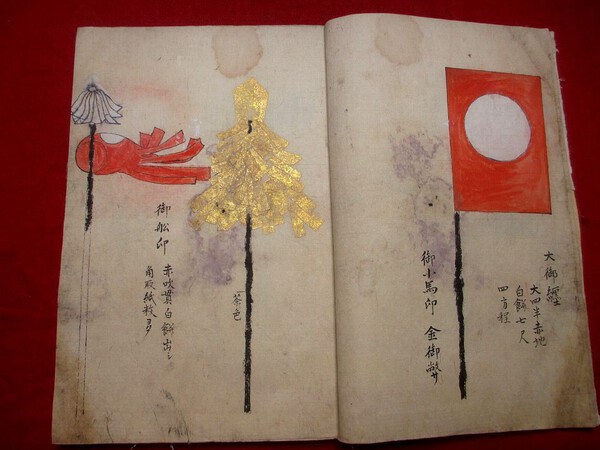 大御纒
大四半赤地
白餅七尺
四方程
御小馬印 金御幣
茶色
御舩印 赤吹貫白餅出シ
角取紙数多